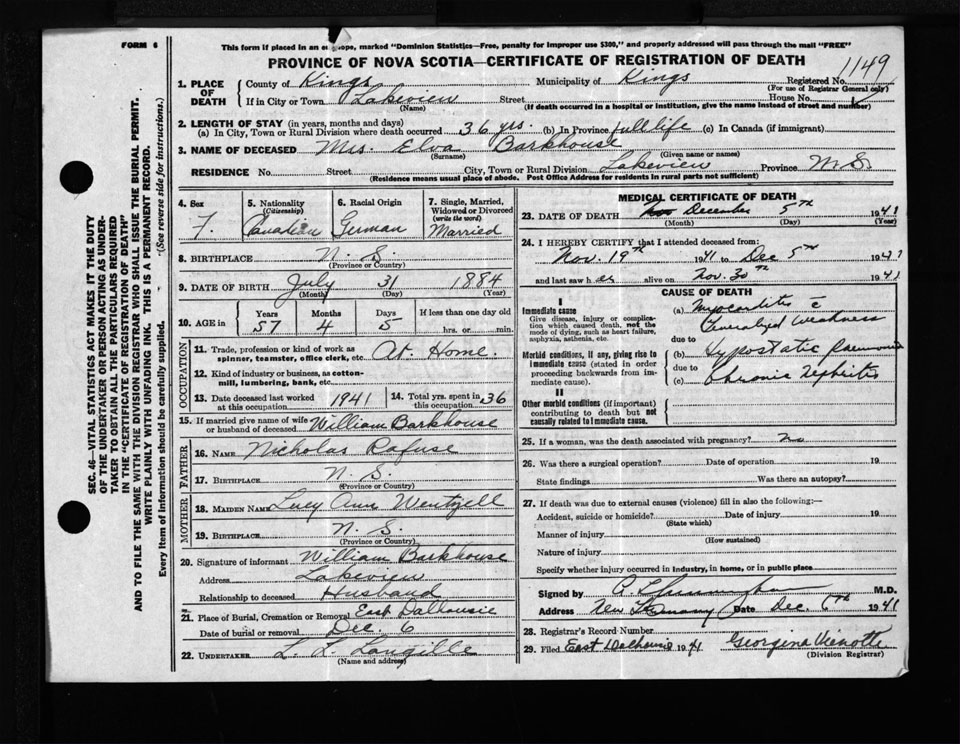 FORM 6
This form if placed in an envelope, marked "Dominion Statistics—Free, penalty for improper use $300," and properly addressed will pass through the mail "FREE"
PROVINCE OF NOVA SCOTIA—CERTIFICATE OF REGISTRATION OF DEATH
1149
1. PLACE OF DEATH
County of Kings Municipality of Kings Registered No.
(For use of Registrar General only)
If in City or Town Lakeview Street House No.
(Name) (If death occurred in a hospital or institution, give the name instead of street and number)
2. LENGTH OF STAY (in years, months and days)
(a) In City, Town or Rural Division where death occurred 36 yrs. (b) In Province full life (c) In Canada (if immigrant)
3. NAME OF DECEASED Mrs. Elva Barkhouse
(Surname) (Given name or names)
RESIDENCE No. Street City, Town or Rural Division Lakeview Province N.S.
(Residence means usual place of abode. Post Office Address for residents in rural parts not sufficient)
4. Sex
F.
5. Nationality
(Citizenship)
Canadian
6. Racial Origin
German
7. Single, Married, Widowed or Divorced
(write the word)
Married
8. BIRTHPLACE N. S.
(Province or Country)
9. DATE OF BIRTH July 31 1884
(Month) (Day) (Year)
10. AGE in Years Months Days If less than one day old
57 4 5 hrs. or min.
OCCUPATION
11. Trade, profession or kind of work as spinner, teamster, office clerk, etc. At Home.
12. Kind of industry or business, as cotton-mill, lumbering, bank, etc.
13. Date deceased last worked at this occupation 1941
14. Total yrs. spent in this occupation 36
15. If married give name of wife or husband of deceased William Barkhouse
FATHER
16. NAME Nicholas Rafuse
17. BIRTHPLACE N. S.
(Province or Country)
MOTHER
18. MAIDEN NAME Lucy Ann Wentzell
19. BIRTHPLACE N. S.
(Province or Country)
20. Signature of informant William Barkhouse
Address Lakeview
Relationship to deceased Husband
21. Place of Burial, Cremation or Removal East Dalhousie
Date of burial or removal Dec. 6
22. UNDERTAKER L. L. Langille
(Name and address)
MEDICAL CERTIFICATE OF DEATH
23. DATE OF DEATH Nov December 5th 1941
(Month) (Day) (Year)
24. I HEREBY CERTIFY that I attended deceased from:
Nov. 19th 1941 to Dec 5th 1941
and last saw her alive on Nov. 30th 1941
CAUSE OF DEATH
I
Immediate cause
Give disease, injury or complication which caused death, not the mode of dying, such as heart failure, asphyxia, asthenia, etc.
(a) Myocarditis c̄
Generalized Weakness
due to
Morbid conditions, if any, giving rise to immediate cause (stated in order proceeding backwards from immediate cause).
(b) Hypostatic Pneumonia
due to
(c) Chronic Nephritis
II
Other morbid conditions (if important) contributing to death but not causally related to immediate cause.
25. If a woman, was the death associated with pregnancy? No
26. Was there a surgical operation? Date of operation 19
State findings Was there an autopsy?
27. If death was due to external causes (violence) fill in also the following:—
Accident, suicide or homicide? Date of injury 19
(State which)
Manner of injury
(How sustained)
Nature of injury
Specify whether injury occurred in industry, in home, or in public place
Signed by M.D.
Address New Germany Date Dec 6th 1941
28. Registrar's Record Number
29. Filed East Dalhousie 1941 Georgina Vienotte
(Division Registrar)
SEC. 46—VITAL STATISTICS ACT MAKES IT THE DUTY
OF THE UNDERTAKER OR PERSON ACTING AS UNDER-
TAKER TO OBTAIN ALL THE PARTICULARS REQUIRED
IN THE "CERTIFICATE OF REGISTRATION OF DEATH"
AND TO FILE THE SAME WITH THE DIVISION REGISTRAR WHO SHALL ISSUE THE BURIAL PERMIT.
WRITE PLAINLY WITH UNFADING INK. THIS IS A PERMANENT RECORD.
Every item of information should be carefully supplied. (See reverse side for instructions.)